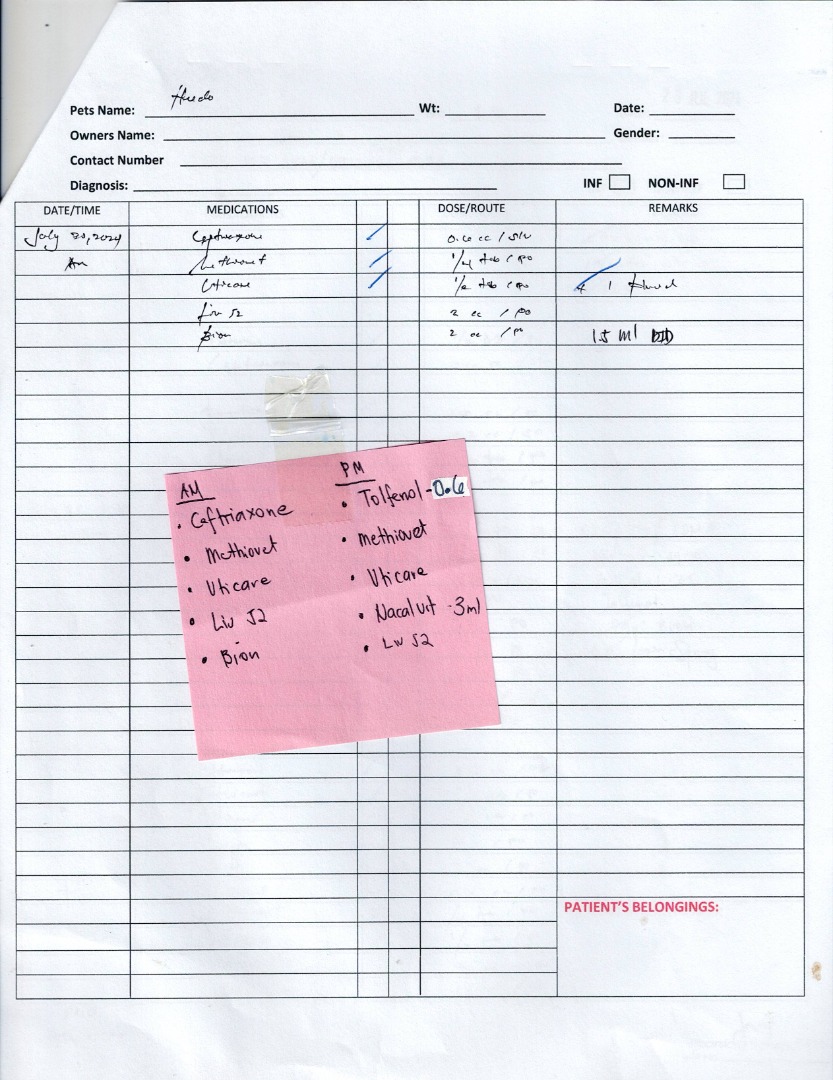 Pets Name: Wt: Date:
Owners Name: Gender:
Contact Number
Diagnosis: INF NON-INF
DATE/TIME MEDICATIONS DOSE/ROUTE REMARKS
July 20, 2024 Ceftriaxone 0.6 cc /
Am Methiovet 1/4 tab / po
1/2 tab / po 1
Liv 52 2 cc / po
Bion 2 cc / po 15 ml
AM
• Ceftriaxone
• Methiovet
• Uticare
• Liv 52
• Bion
PM
• Tolfenol - 0.6
• methiovet
• Uticare
• Nacalvit - 3ml
• Liv 52
PATIENT'S BELONGINGS: